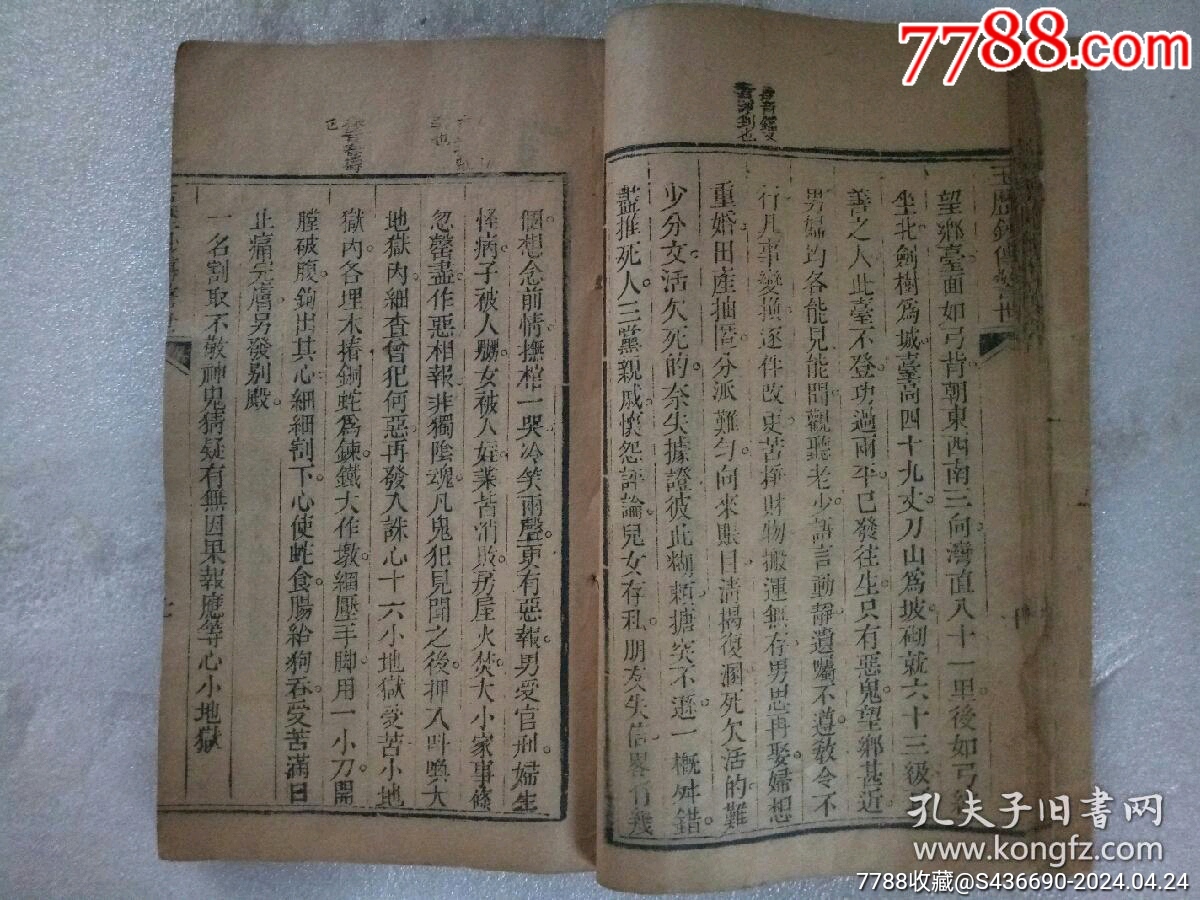 7788.com
玉歷鈔傳警世
望鄉臺面如弓背朝東西南三向灣直八十一里後如弓絃
坐北劍樹爲城臺高四十九丈刀山爲坡砌就六十三級
善之人此臺不登功過兩平已發往生只有惡鬼望鄉甚近
男婦均各能見能聞觀聽老少語言動靜遺囑不遵敎令不
行凡事變換逐件改更苦掙財物搬運無存男思再娶婦想
重婚田產抽匿分派難勻向來賬目淸揭復溷死欠活的難
少分文活欠死的奈失據證彼此糊賴搪突不遜一槪舛錯
盡推死人三黨親戚懷怨評論兒女存私朋友失信畧有幾
個想念前情撫棺一哭冷笑兩聲更有惡報男受官刑婦生
怪病子被人嬲女被人婬業皆消敗房屋火焚大小家事條
忽罄盡作惡相報非獨陰魂凡鬼犯見聞之後押入呌喚大
地獄內細查曾犯何惡再發入誅心十六小地獄受苦小地
獄內各埋木樁銅蛇爲鍊鐵犬作墩綑壓手脚用一小刀開
膛破腹鉤出其心細細割下心使蛇食腸給狗吞受苦滿日
止痛完膚另發別殿
一名割取不敬神鬼猜疑有無因果報應等心小地獄
孔夫子旧書网
www.kongfz.com
7788收藏@S436690-2024.04.24